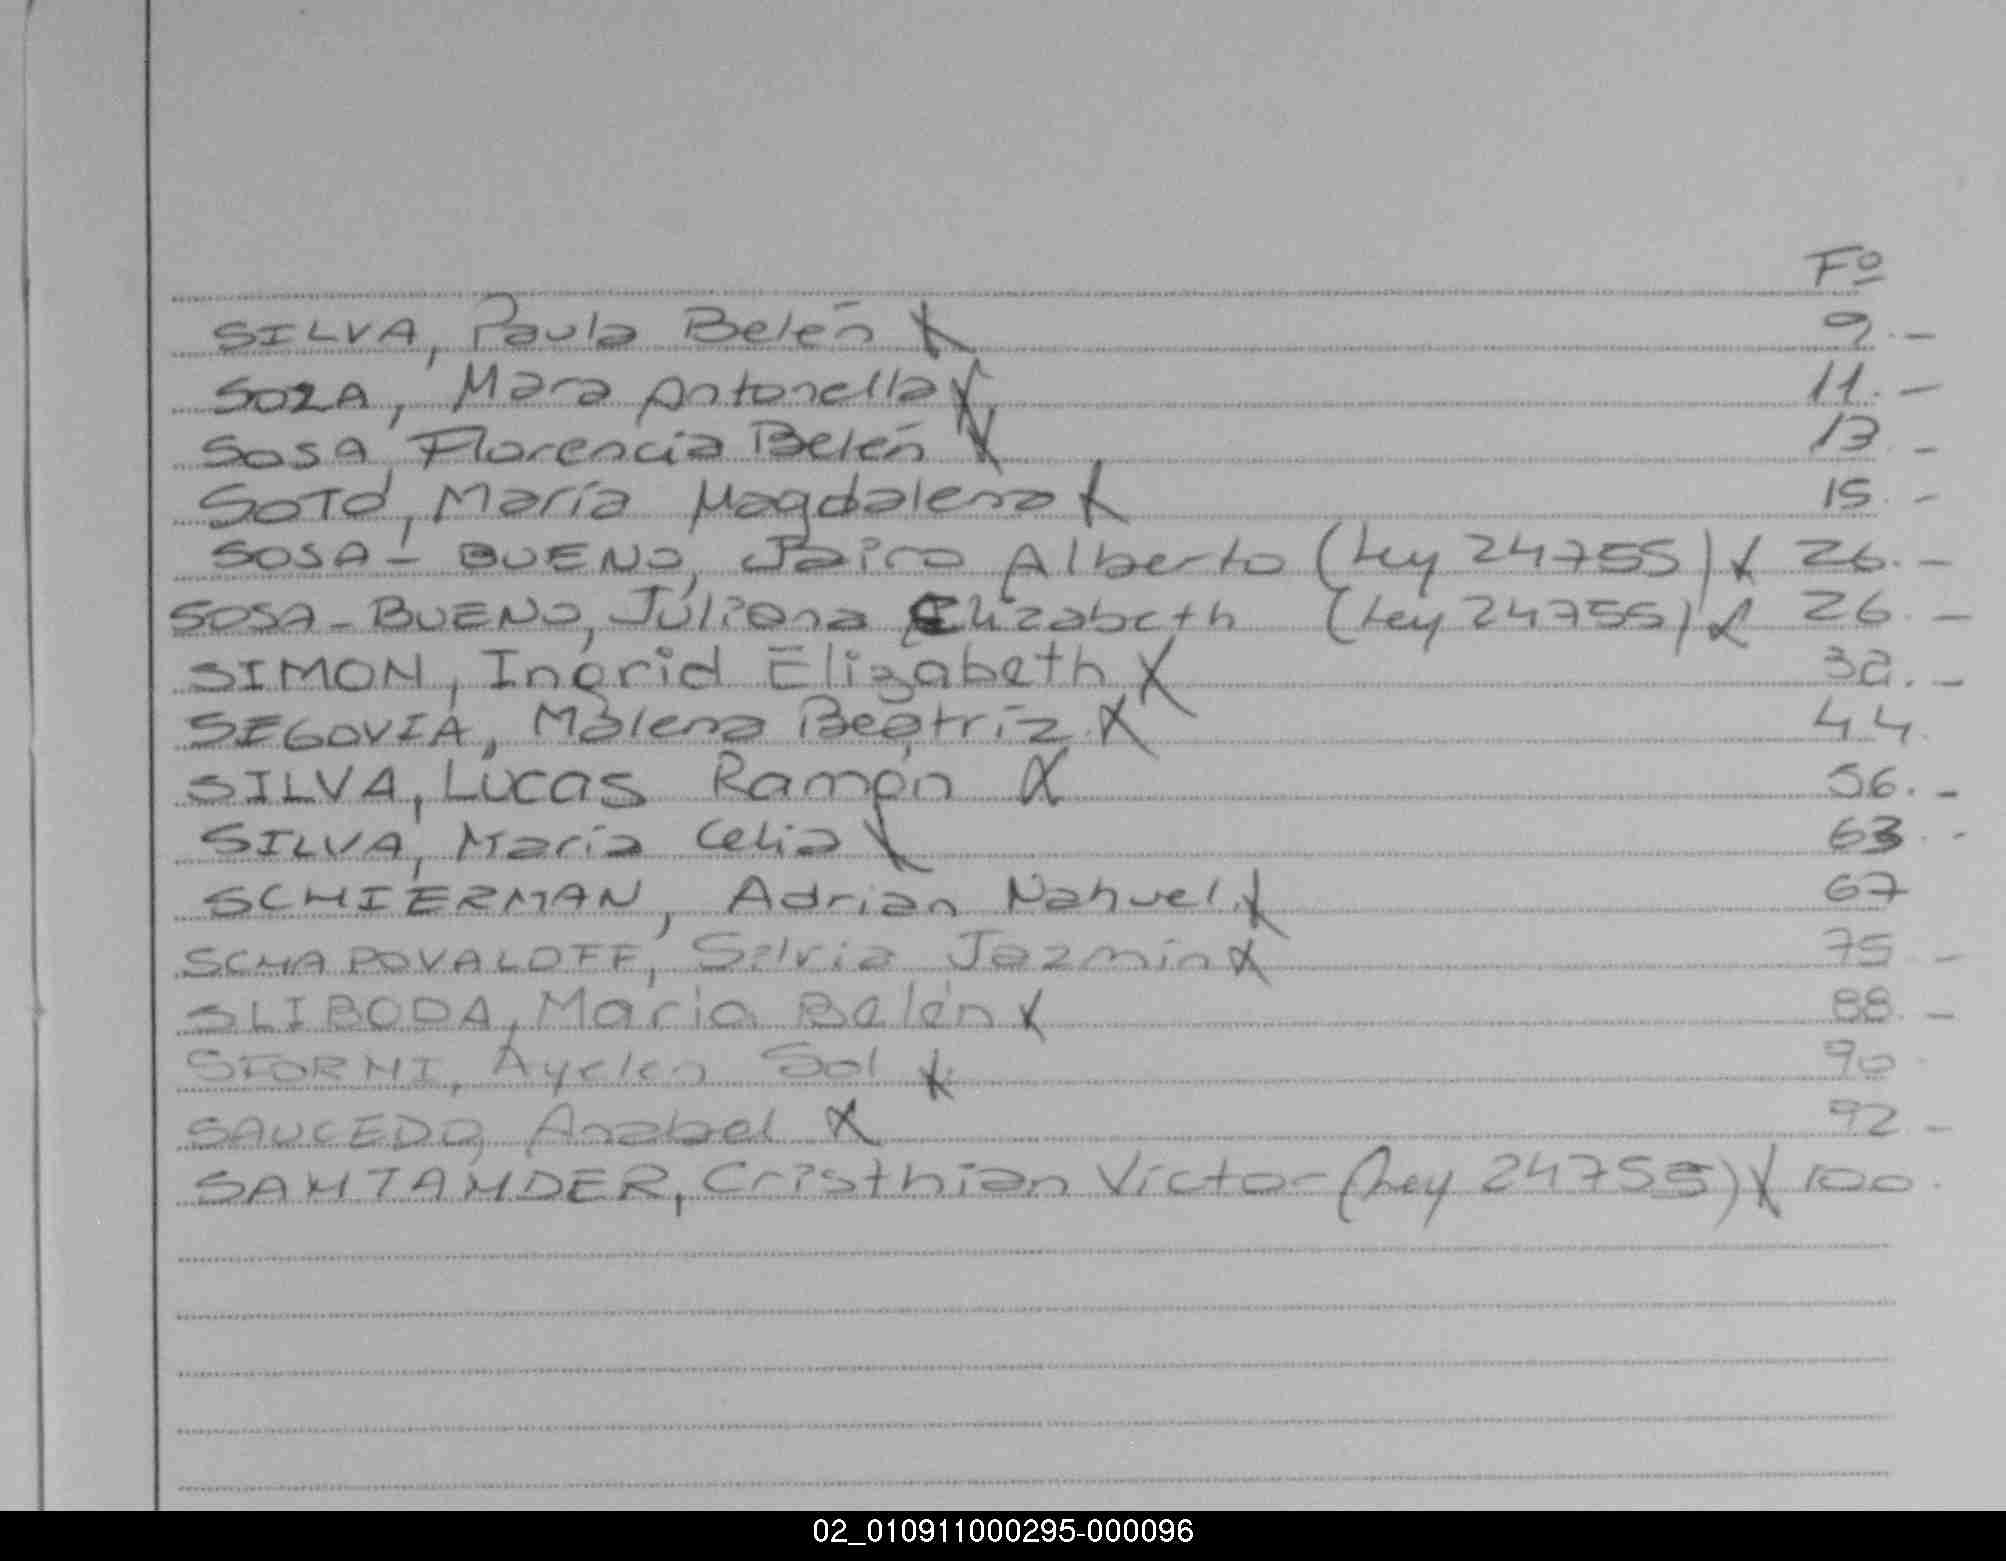 Fº
SILVA, Paula Belén X 9.-
SOZA, Mara Antonella X 11.-
SOSA, Florencia Belén X 13.-
SOTO, María Magdalena X 15.-
SOSA - BUENO, Jairo Alberto (Ley 24755) X 26.-
SOSA - BUENO, Juliana Elizabeth (Ley 24755) X 26.-
SIMON, Ingrid Elizabeth X 32.-
SEGOVIA, Malena Beatríz X 44.
SILVA, Lucas Ramón X 56.-
SILVA, María Celia X 63.-
SCHIERMAN, Adrian Nahuel X 67
SCHAPOVALOFF, Silvia Jazmín X 75.-
SLIBODA, María Belén X 88.-
STORNI, Ayelen Sol X 90.
SAUCEDO, Anabel X 92.-
SANTANDER, Cristhian Victor (Ley 24755) X 100.
02_010911000295-000096